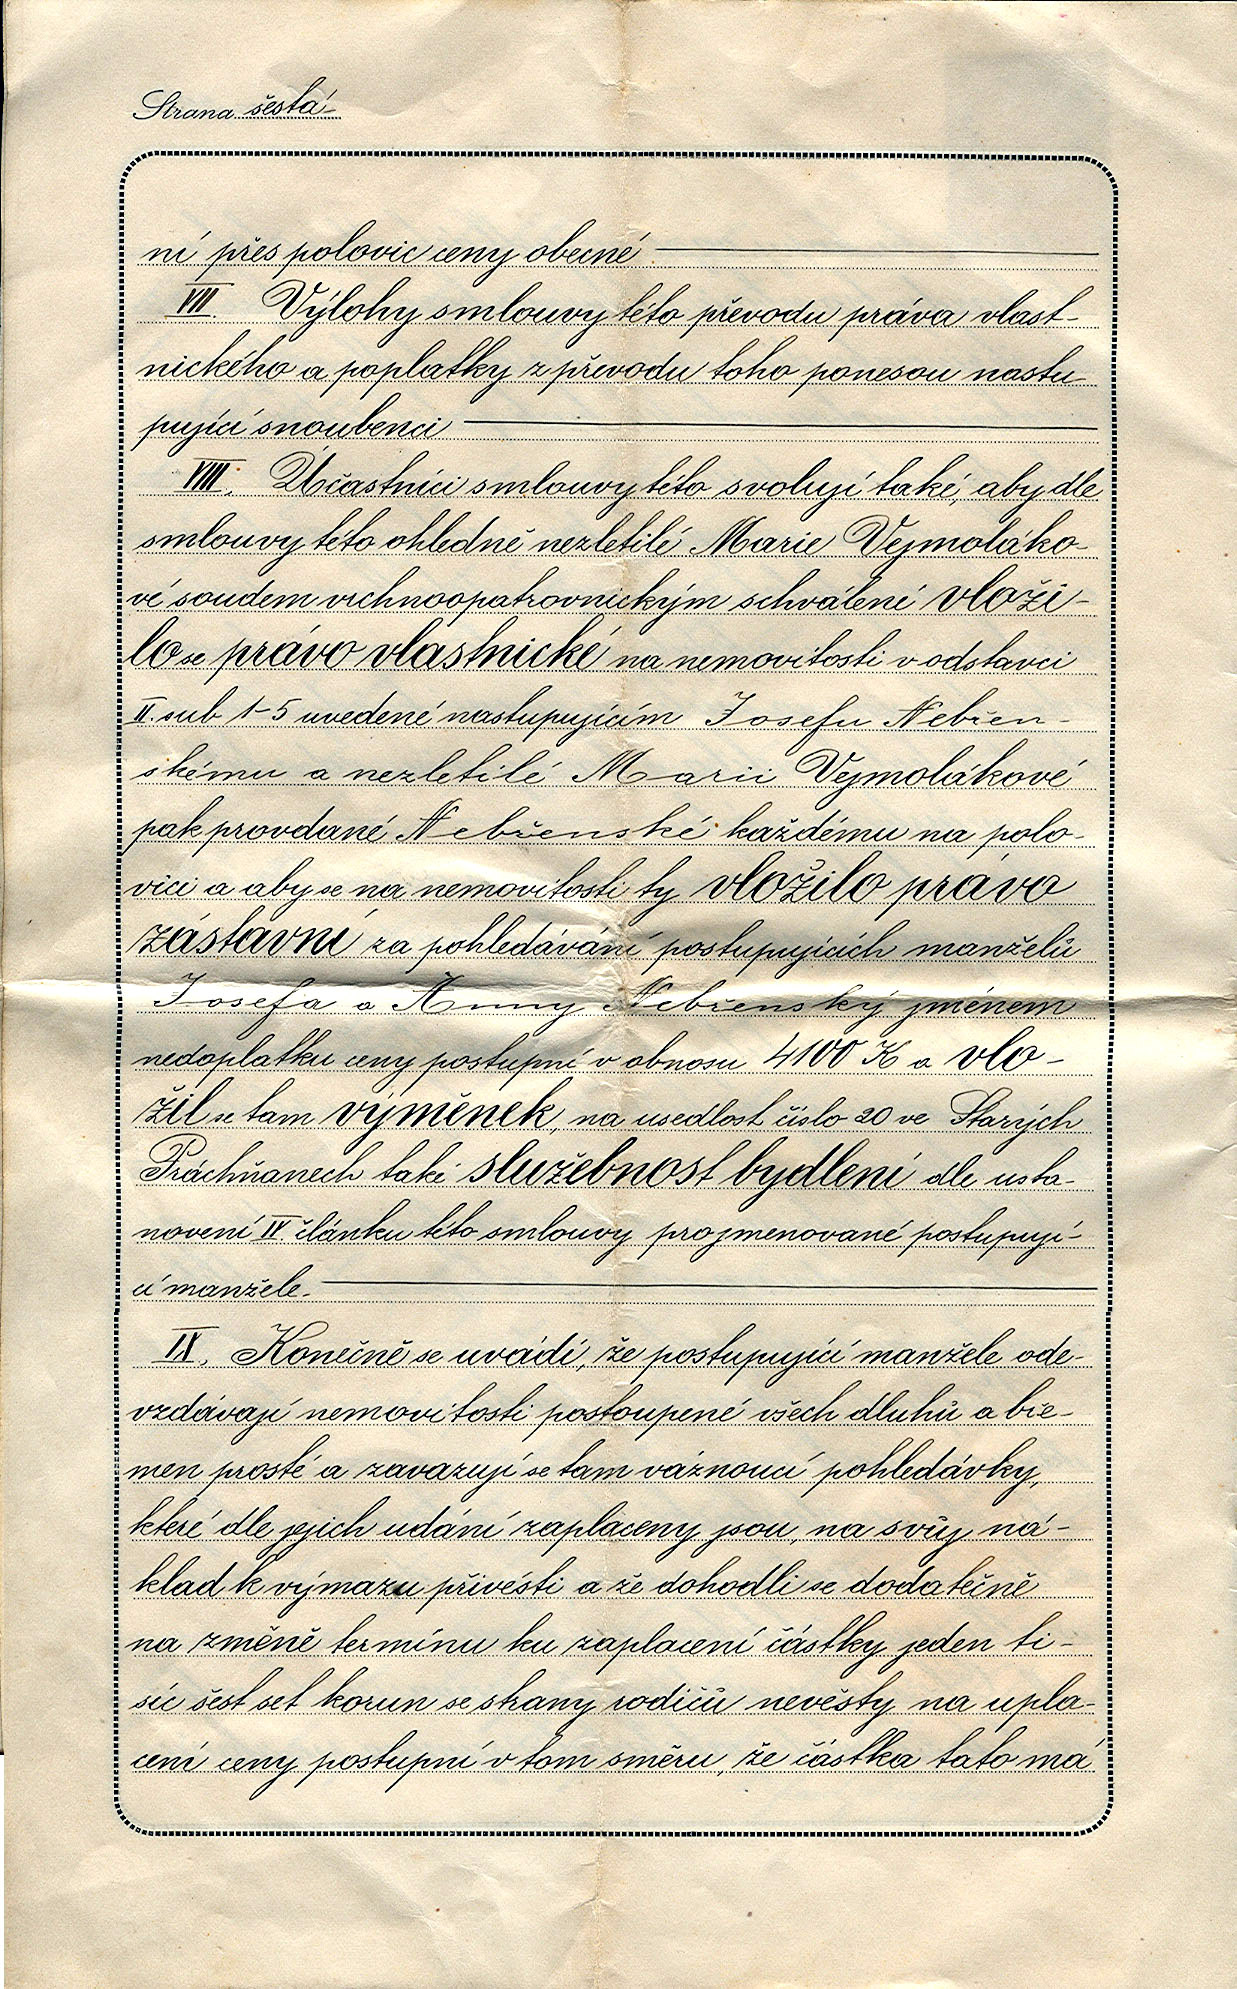 Strana šestá
ní přes polovic ceny obecné
VII. Výlohy smlouvy této převodu práva vlast-
nického a poplatky z převodu toho ponesou nastu
pující snoubenci
VIII. Účastníci smlouvy této svolují také, aby dle
smlouvy této ohledně nezletilé Marie Vejmoláko-
vé soudem vrchnoopatrovnickým schválené vloži-
lo se právo vlastnické na nemovitosti v odstavci
II. sub 1-5 uvedené nastupujícím Josefu Nebřen-
skému a nezletilé Marii Vejmolákové
pak provdané Nebřenské každému na polo-
vici a aby se na nemovitosti ty vložilo právo
zástavní za pohledávání postupujících manželů
Josefa a Anny Nebřenský jménem
nedoplatku ceny postupní v obnosu 4100 K a vlo-
žil se tam výměnek, na usedlost číslo 20 ve Starých
Práchňanech také služebnost bydlení dle usta-
novení IV. článku této smlouvy pro jmenované postupují-
cí manžele.
IX. Konečně se uvádí, že postupující manžele ode-
vzdávají nemovitosti postoupené všech dluhů a bře-
men prosté a zavazují se tam váznoucí pohledávky,
které dle jejich udání zaplaceny jsou, na svůj ná-
klad k výmazu přivésti a že dohodli se dodatečně
na změně termínu ku zaplacení částky jeden ti-
síc šest set korun se strany rodičů nevěsty na upla-
cení ceny postupní v tom směru, že částka tato má